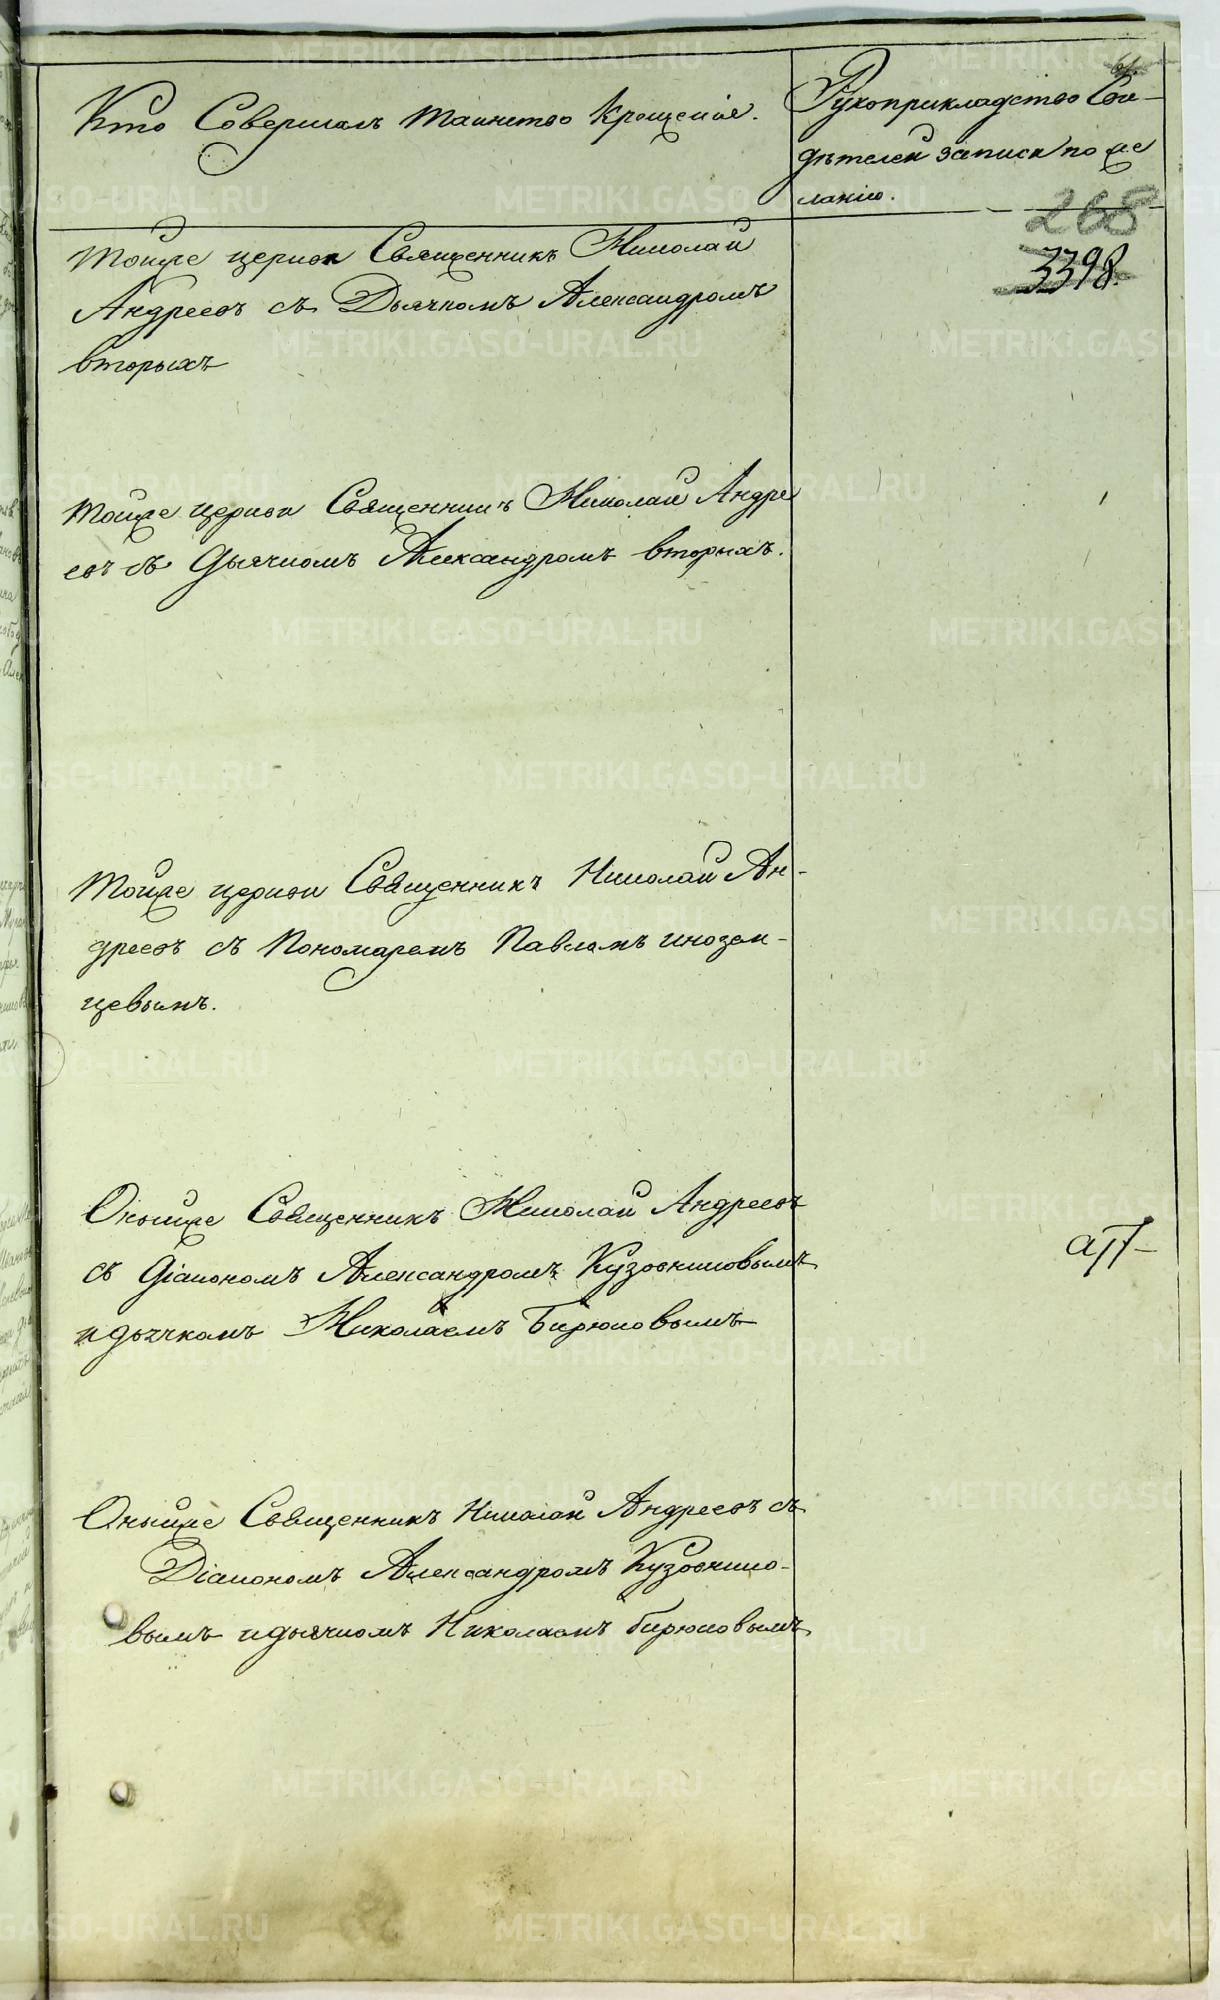 Кто Совершалъ таинство крещенія.
Рукоприкладство Сви-
дѣтелей записи по же
ланію.
268
3398.
Тойже церкви Священникъ Николай
Андреевъ съ Дьячкомъ Александромъ
вторыхъ
Тойже церкви Священникъ Николай Андре
евъ съ Дьячкомъ Александромъ вторыхъ.
Тойже церкви Священникъ Николай Ан-
дреевъ съ Пономаремъ Павломъ инозем-
цевымъ.
Оныйже Священникъ Николай Андреевъ
съ Діакономъ Александромъ Кузовниковымъ
и дьячкомъ Николаемъ Бирюковымъ
Оныйже Священникъ Николай Андреевъ съ
Діакономъ Александромъ Кузовнико-
вымъ и дьячкомъ Николаемъ бирюковымъ
METRIKI.GASO-URAL.RU